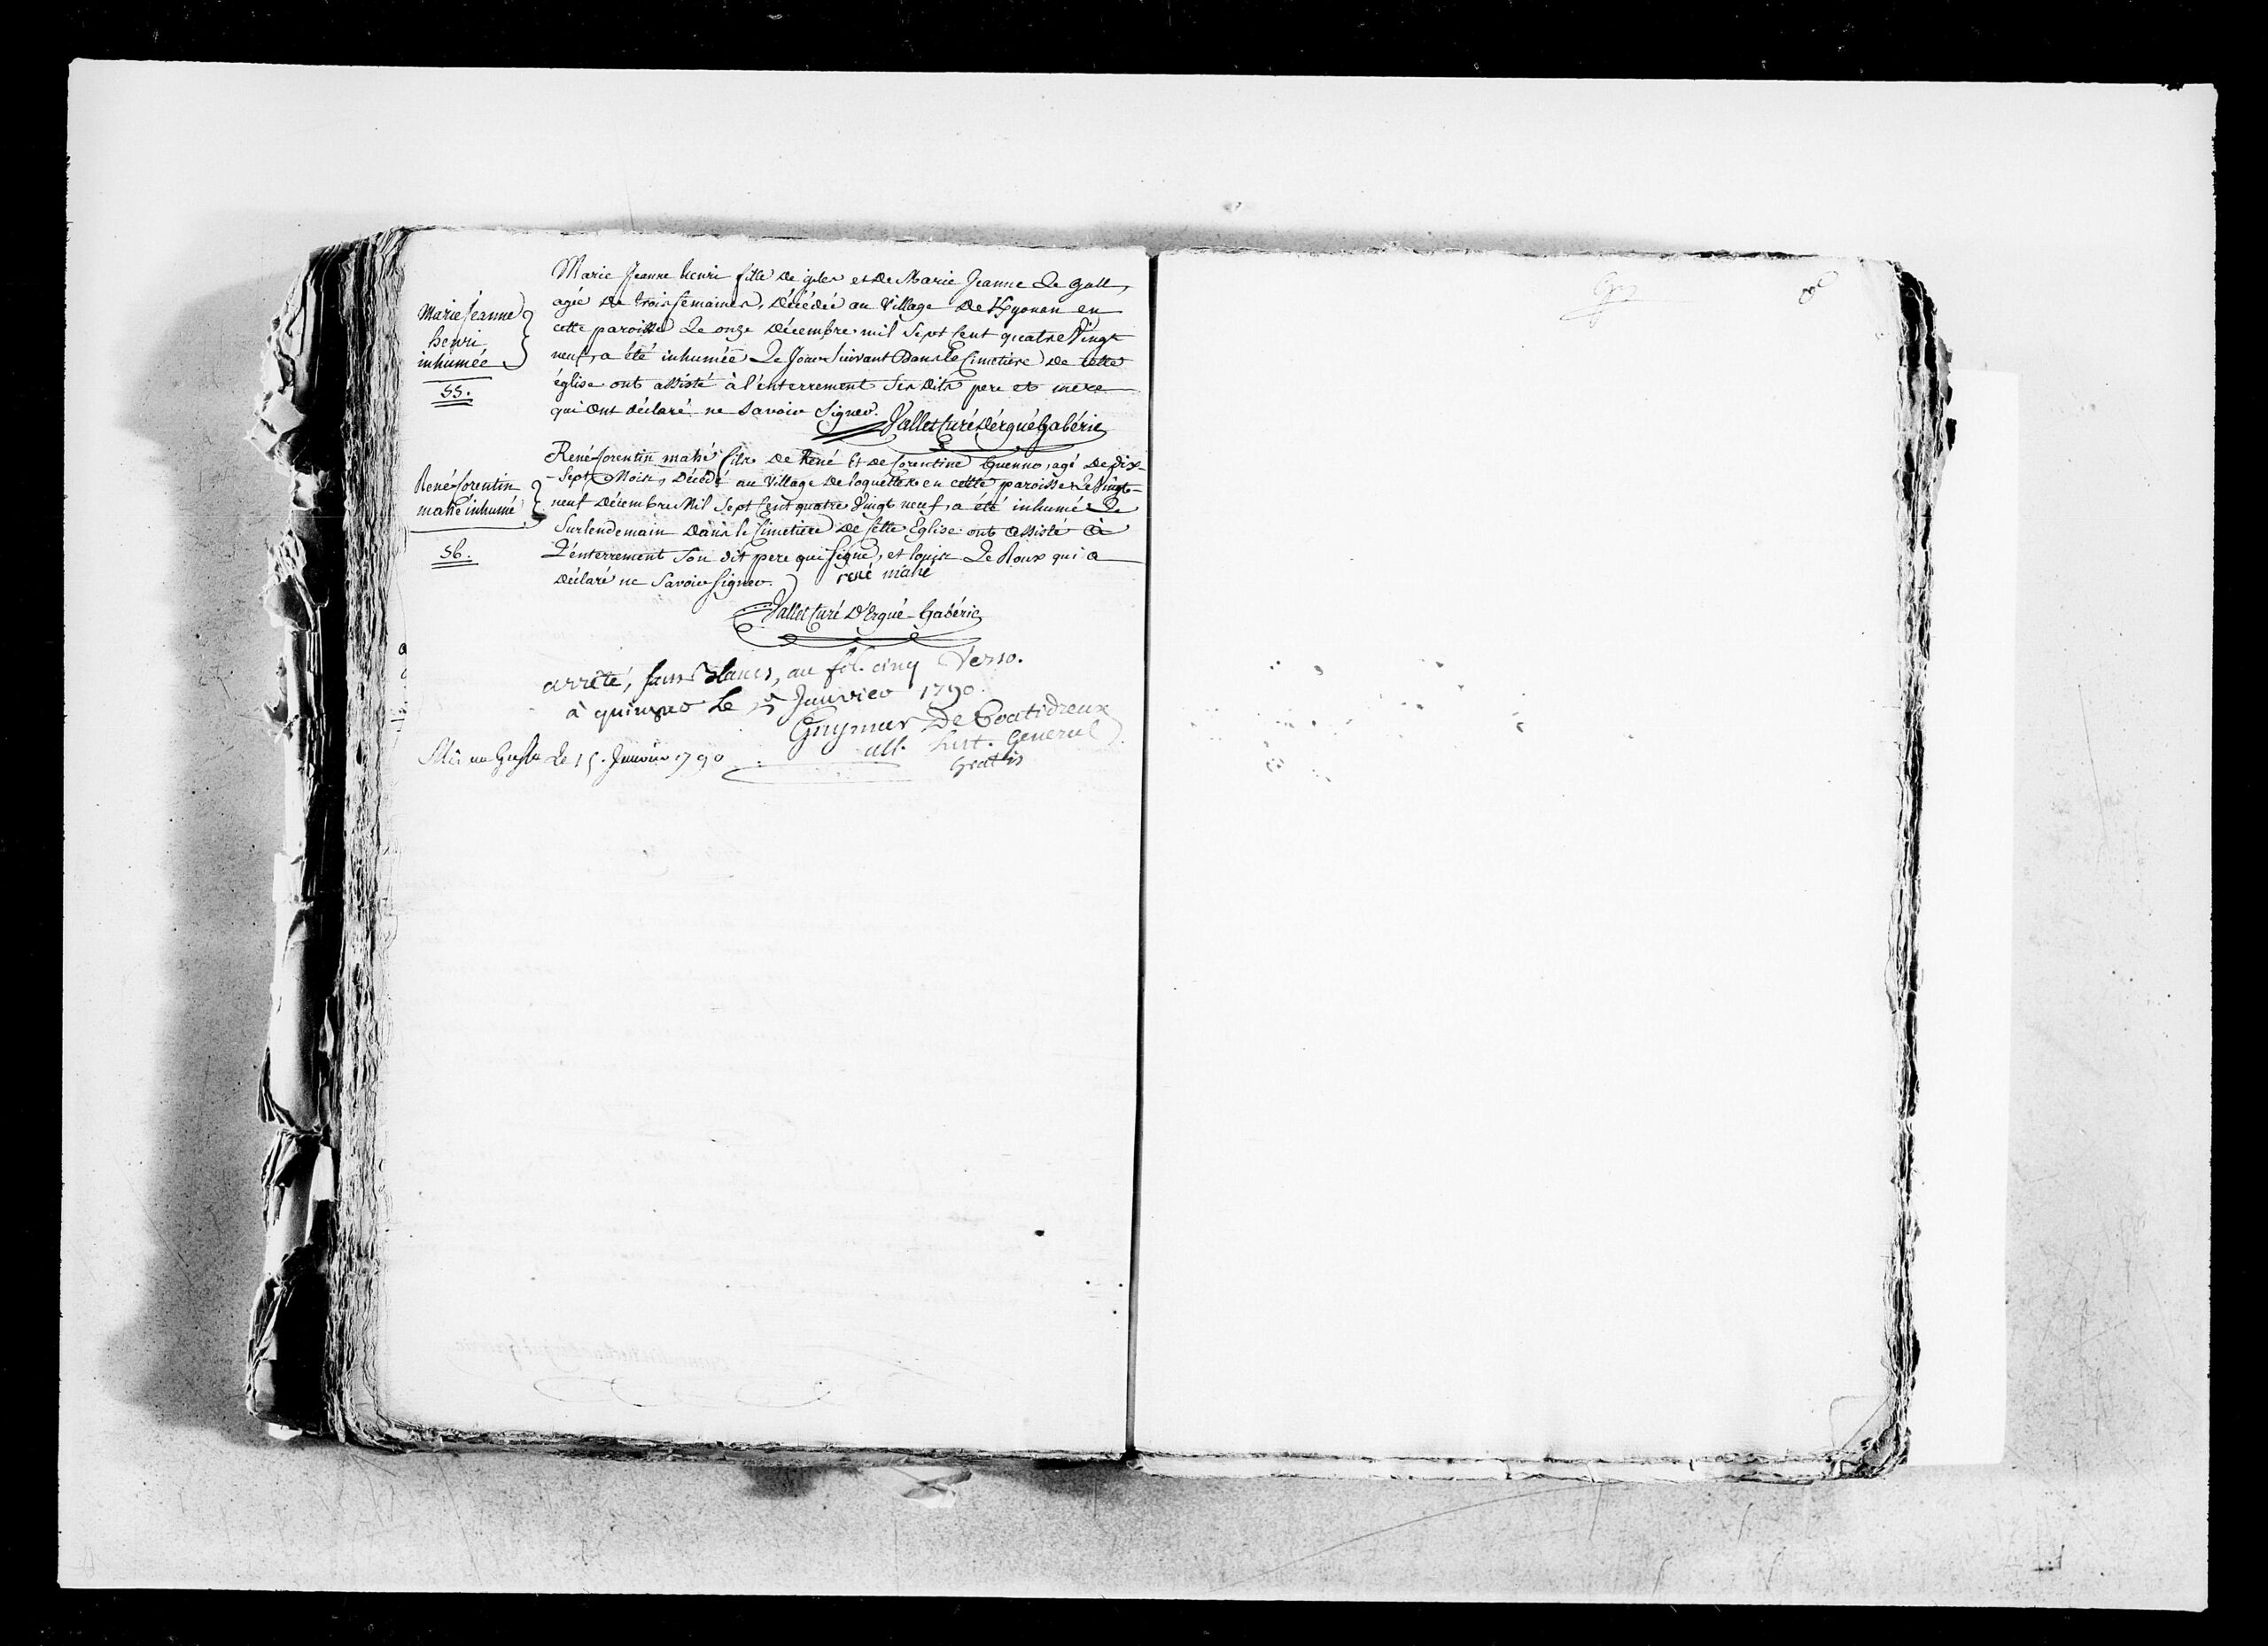 Marie Jeanne
henri
inhumée
55.
Marie Jeanne henri fille de giles et de Marie Jeanne Le gall,
agée de trois semaines, décédée au Village de Kyonan en
cette paroisse le onze décembre mil Sept Cent quatre Vingt
neuf, a été inhumée Le Jour Suivant Dans le Cimetiere de cette
église ont assisté à l'enterrement Ses dits pere et mere
qui ont déclaré ne Savoir Signer.
Vallet Curé d'érgué Gabéric
René Corentin
mahé inhumé
56.
René Corentin mahé fils de René Et de Corentine Guenno, agé de dix-
-Sept Mois, Décédé au Village de en cette paroisse Le Vingt-
neuf Décembre Mil Sept Cent quatre Vingt neuf, a été inhumé Le
Surlendemain Dans le Cimetiere de Cette Eglise. ont assisté à
L'enterrement Son dit pere qui Signe, et louise Le Roux qui a
déclaré ne Savoir Signer. rené mahé
Vallet Curé D'Ergué-Gabéric
arrêté, sans blancs, au fol. cinq Verso.
à quimper Le 15 Janvier 1790.
De Coatidreux
Lieut. General
gratis
au Greffe Le 15. Janvier 1790